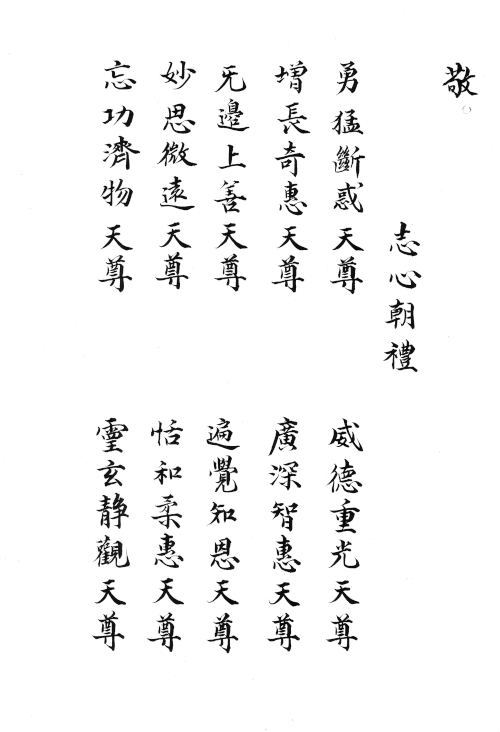 敬
志心朝禮
勇猛斷惑天尊
威德重光天尊
增長奇惠天尊
廣深智惠天尊
无邊上善天尊
遍覺知恩天尊
妙思微遠天尊
恬和柔惠天尊
忘功濟物天尊
靈玄靜觀天尊